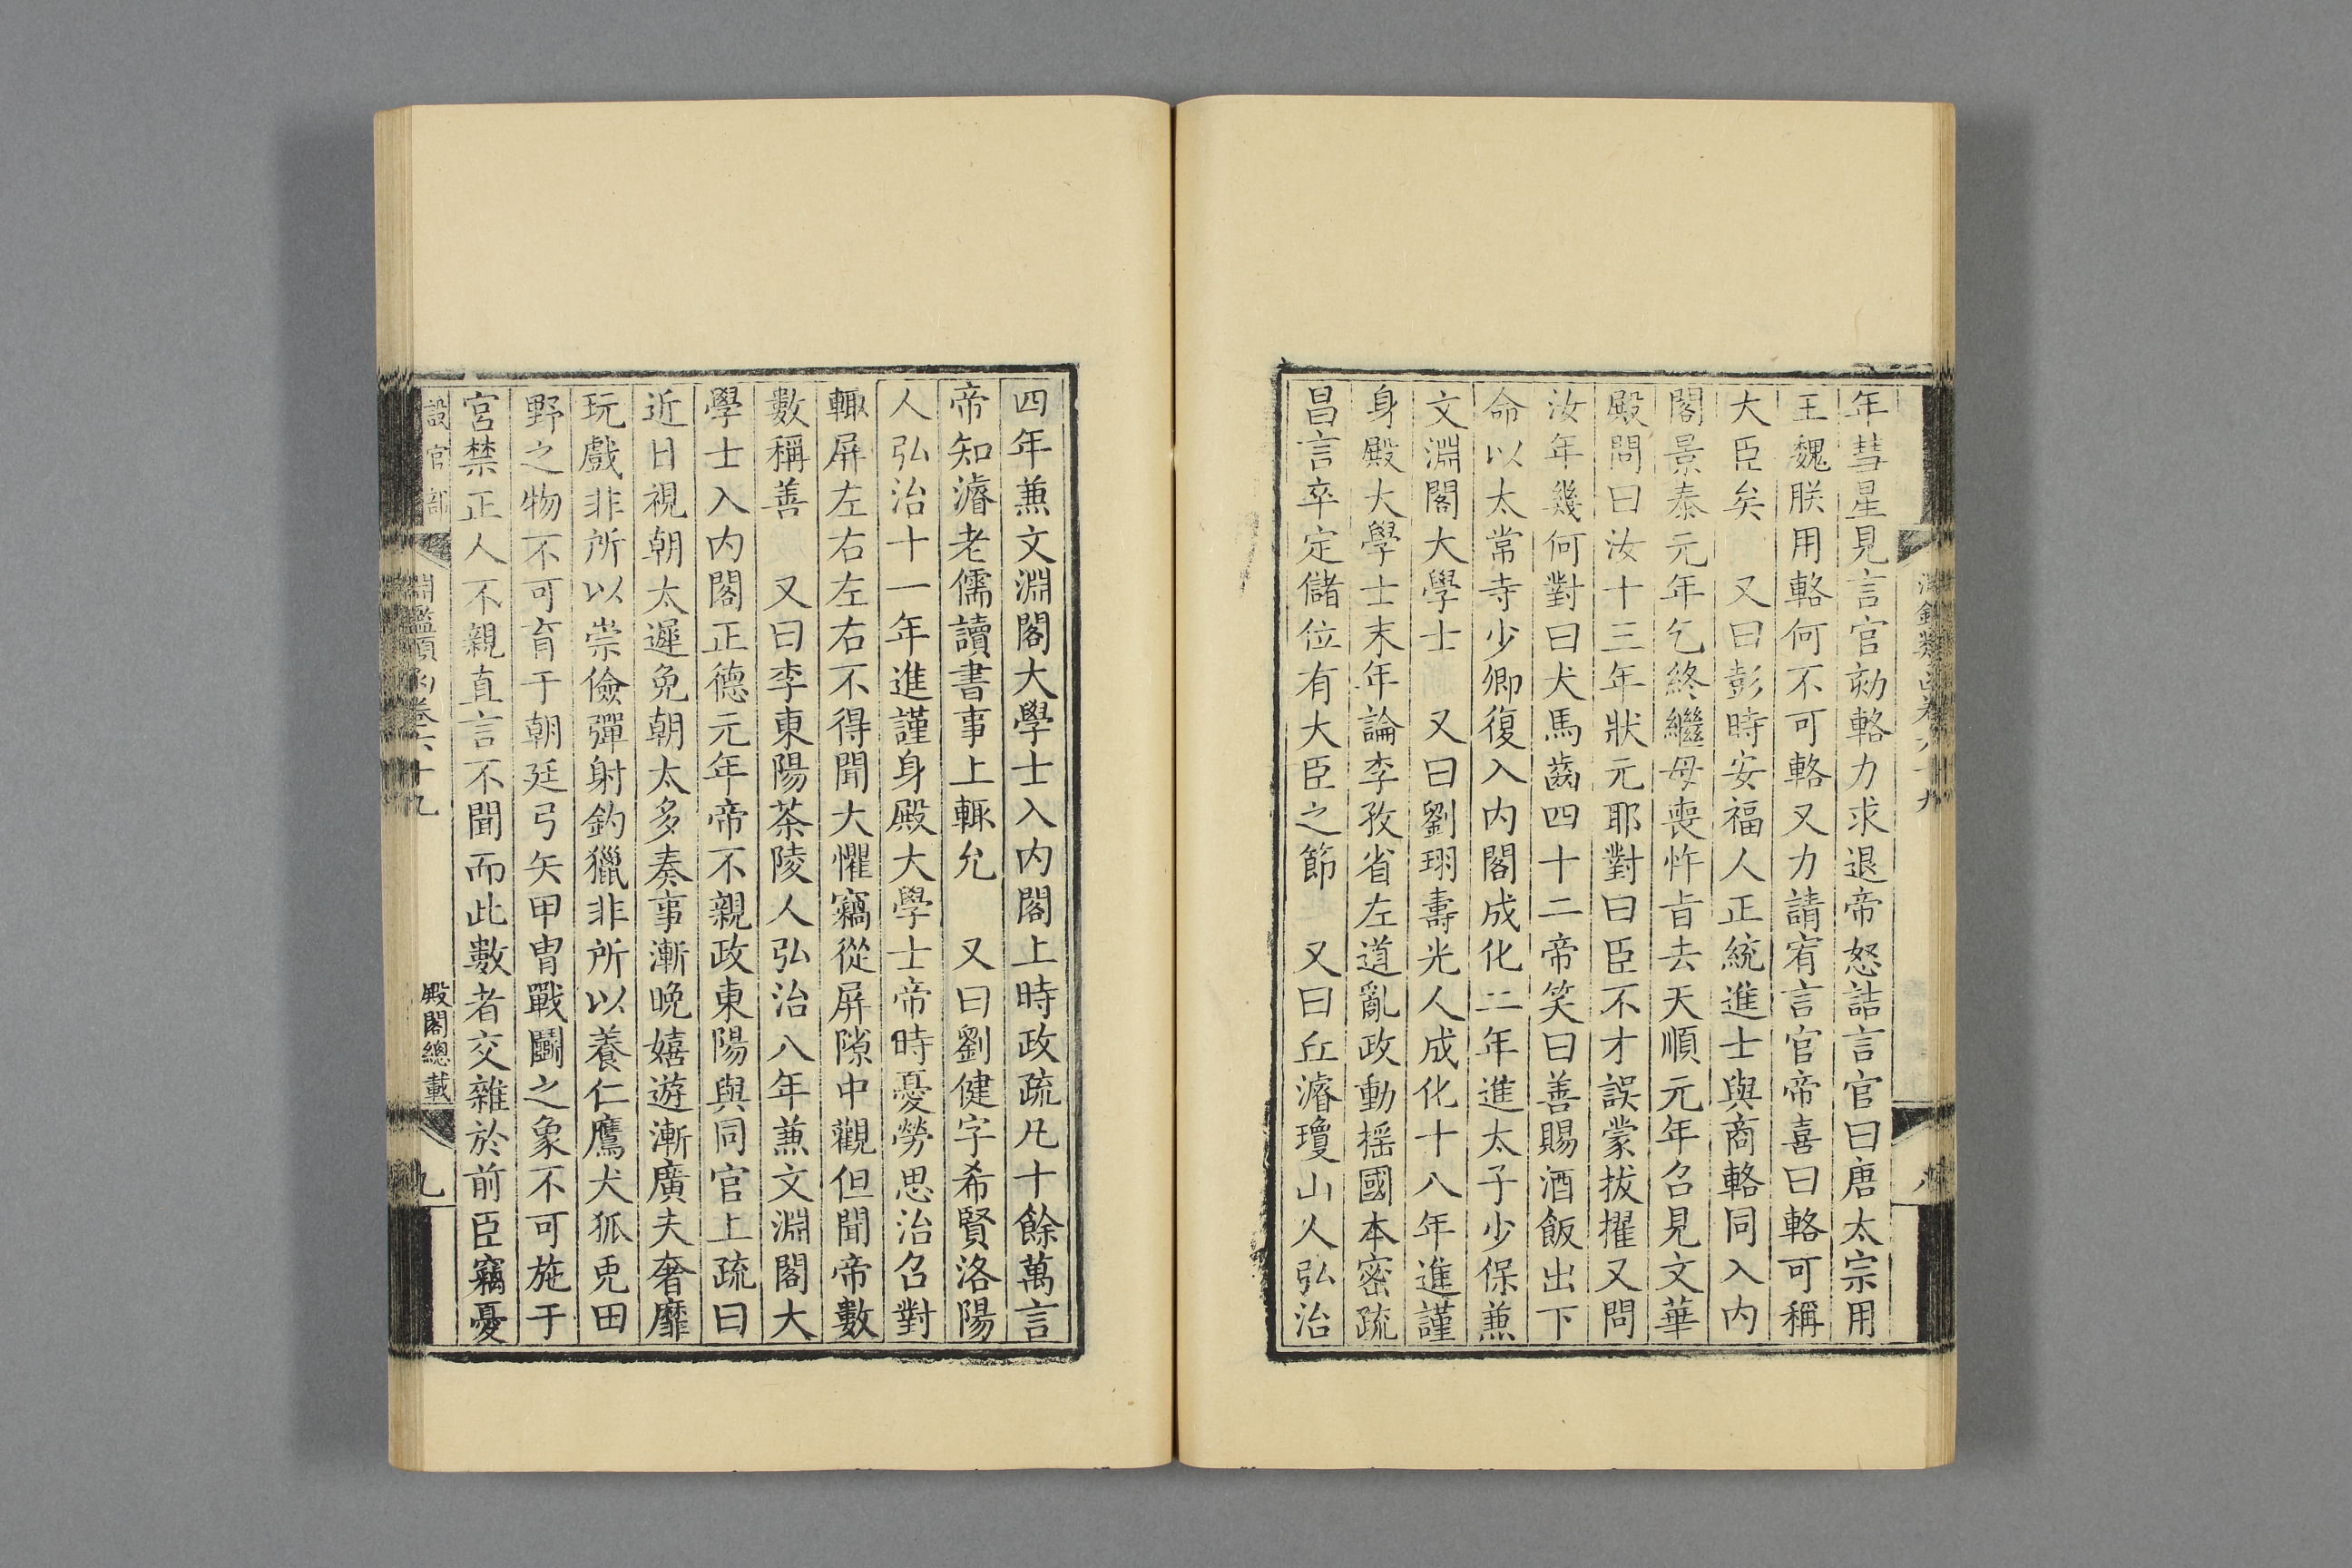 年彗星見言官劾輅力求退帝怒詰言官曰唐太宗用
王魏朕用輅何不可輅又力請宥言官帝喜曰輅可稱
大臣矣　又曰彭時安福人正統進士與商輅同入内
閣景泰元年乞終繼母喪忤旨去天順元年召見文華
殿問曰汝十三年狀元耶對曰臣不才誤蒙拔擢又問
汝年幾何對曰犬馬齒四十二帝笑曰善賜酒飯出下
命以太常寺少卿復入内閣成化二年進太子少保兼
文淵閣大學士　又曰劉珝壽光人成化十八年進謹
身殿大學士末年論李孜省左道亂政動摇國本密疏
昌言卒定儲位有大臣之節　又曰丘濬瓊山人弘治
四年兼文淵閣大學士入内閣上時政疏凡十餘萬言
帝知濬老儒讀書事上輒允　又曰劉健字希賢洛陽
人弘治十一年進謹身殿大學士帝時憂勞思治召對
輒屏左右左右不得聞大懼竊從屏隙中觀但聞帝數
數稱善　又曰李東陽茶陵人弘治八年兼文淵閣大
學士入内閣正德元年帝不親政東陽與同官上疏曰
近日視朝太遲免朝太多奏事漸晚嬉遊漸廣夫奢靡
玩戲非所以崇儉彈射釣獵非所以養仁鷹犬狐兎田
野之物不可育于朝廷弓矢甲胄戰鬭之象不可施于
宮禁正人不親直言不聞而此數者交雜於前臣竊憂
設官部
淵鑑類函卷六十九
殿閣總載
九